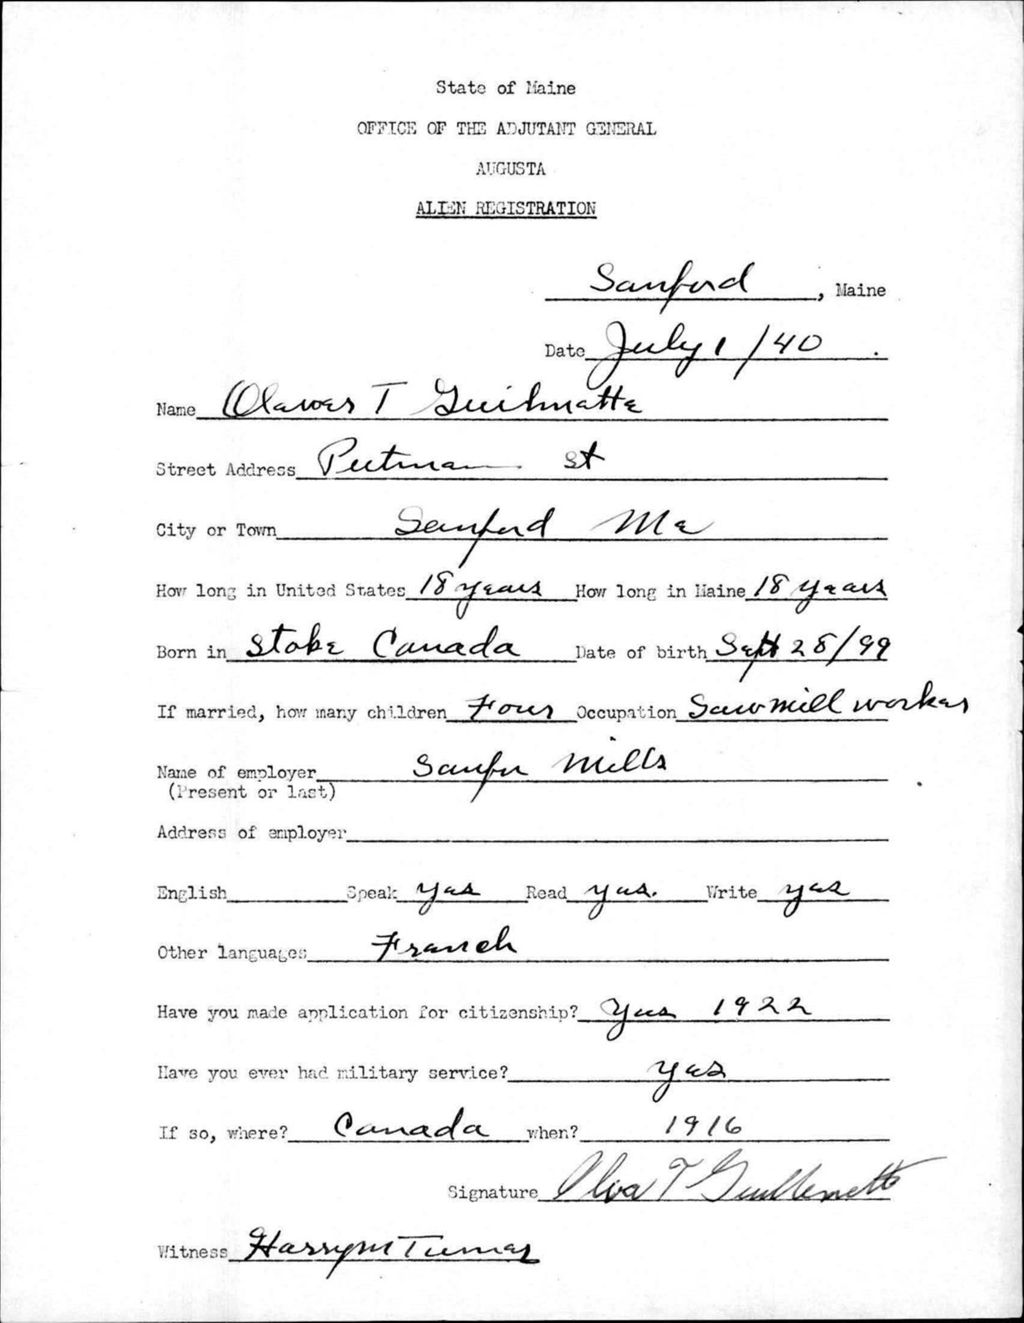 State of Maine
OFFICE OF THE ADJUTANT GENERAL
AUGUSTA
ALIEN REGISTRATION
Sanford, Maine
Date July 1/40.
Name T Guilmatte
Street Address Putman St
City or Town Sanford Me
How long in United States 18 years How long in Maine 18 years
Born in Stoke Canada Date of birth Sept 28/99
If married, how many children Four Occupation Sawmill worker
Name of employer Sanfor Mills
(Present or last)
Address of employer
English Speak yes Read yes. Write yes
Other languages French
Have you made application for citizenship? Yes 1922
Have you ever had military service? yes
If so, where? Canada when? 1916
Signature T
Witness Harry M